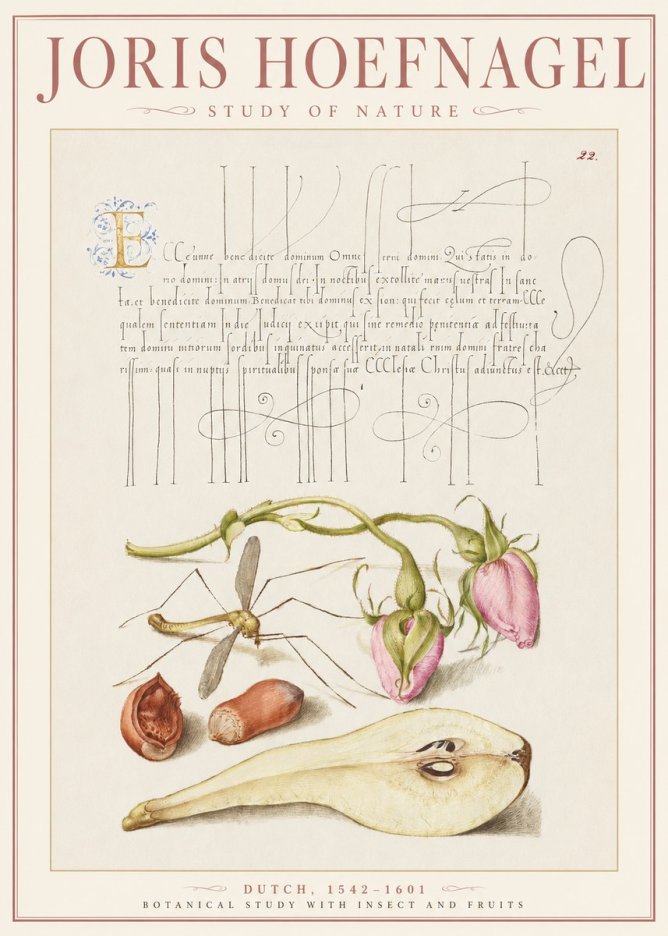 JORIS HOEFNAGEL
STUDY OF NATURE
22.
ECCe nunc benedicite dominum Omnes servi domini. Qui statis in do-
mo domini: In atrijs domus dei: In noctibus extollite manus vestras In sanc
ta, et benedicite dominum. Benedicat tibi dominus ex sion: qui fecit cęlum et terram. CCCe
qualem sententiam In die Iudicij excipit qui sine remedio penitentia ad
tem domini sordibus inquinatus accesserit, in natali domini fratres cha
rissimi: quasi in nuptijs spiritualibus sponsæ suæ CCCLesiæ Christus adiunctus est. &cet
DUTCH, 1542–1601
BOTANICAL STUDY WITH INSECT AND FRUITS